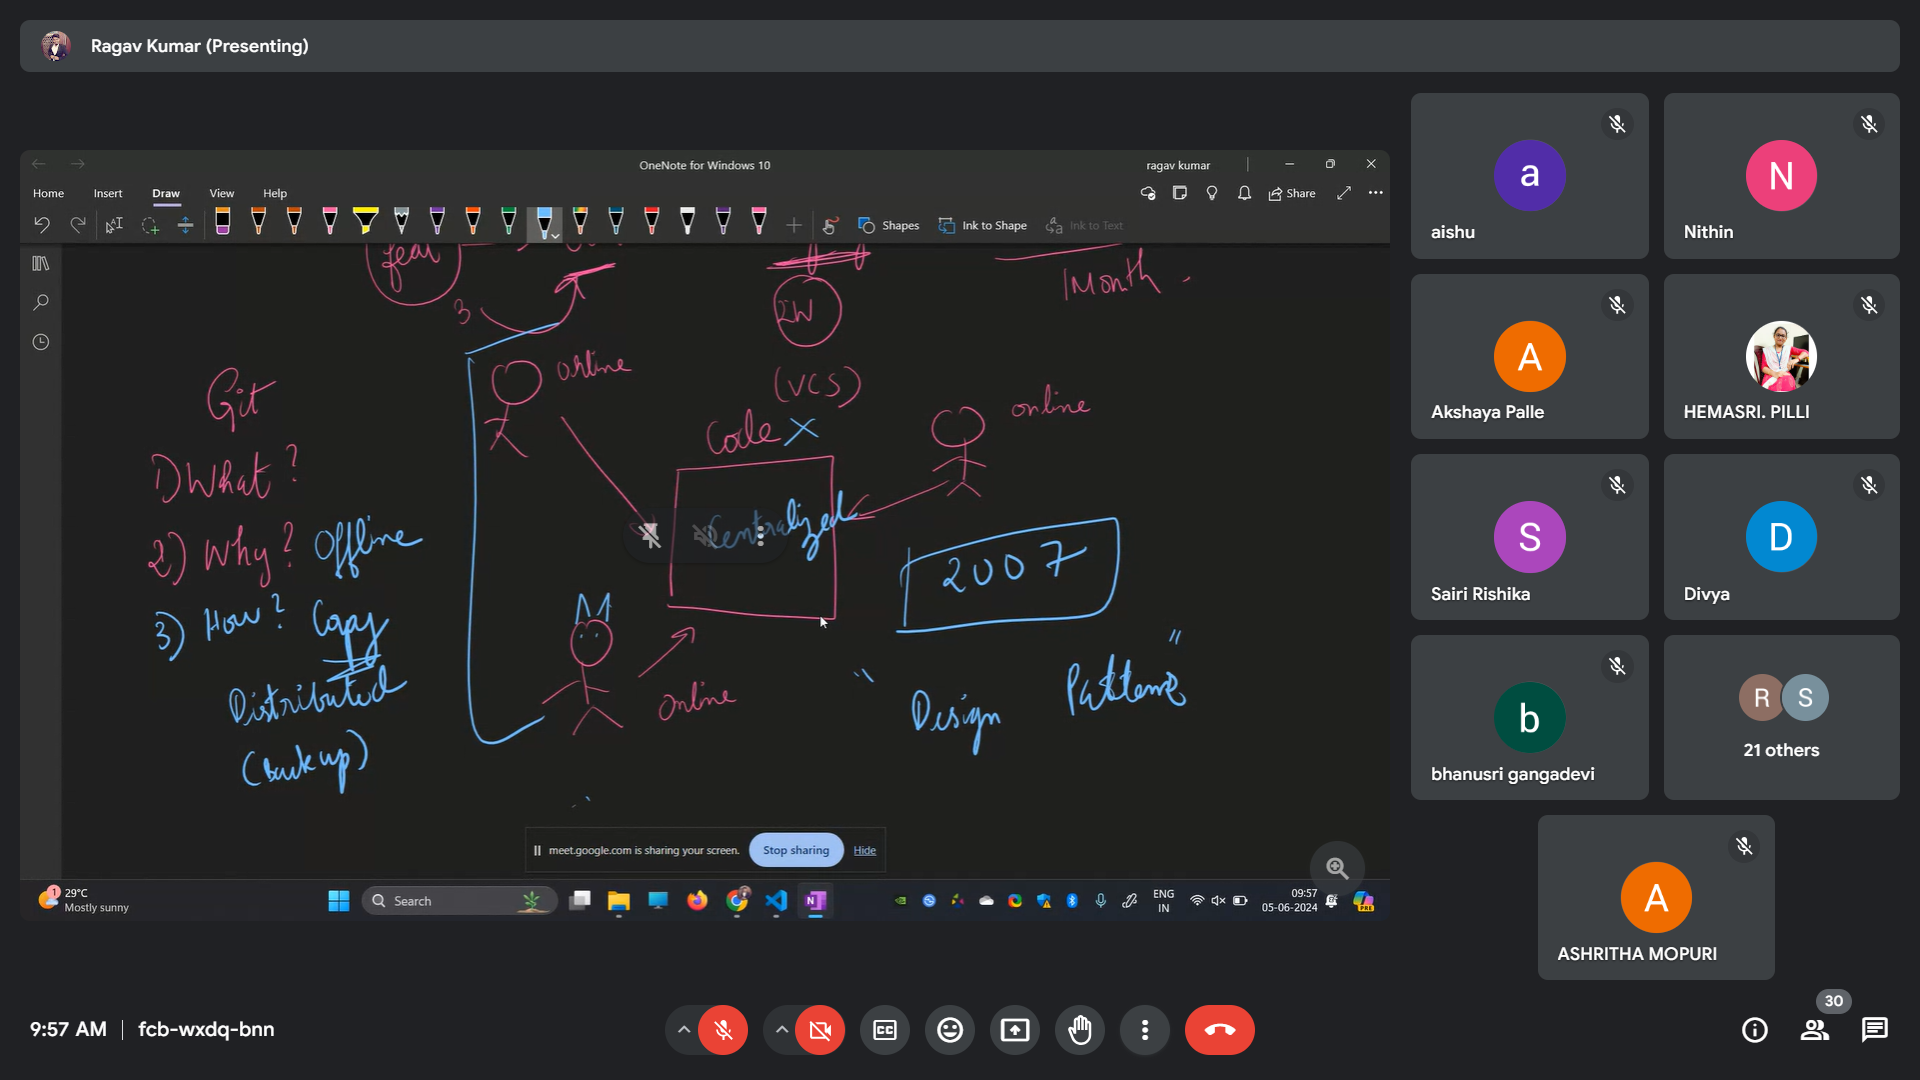 Ragav Kumar (Presenting)
OneNote for Windows 10
ragav kumar
Home Insert Draw View Help
Share
Shapes
Ink to Shape
Ink to Text
feat
3
1 Month
2W
online
(VCS)
online
Code X
Git
1) What?
2) Why? Offline
3) How? Copy
Distributed
(Backup)
Centralized
2007
online
" Design Patterns "
meet.google.com is sharing your screen.
Stop sharing
Hide
1
29°C
Mostly sunny
Search
N
ENG
IN
09:57
05-06-2024
PRE
a
aishu
N
Nithin
A
Akshaya Palle
HEMASRI. PILLI
S
Sairi Rishika
D
Divya
b
bhanusri gangadevi
R S
21 others
A
ASHRITHA MOPURI
9:57 AM
fcb-wxdq-bnn
CC
30